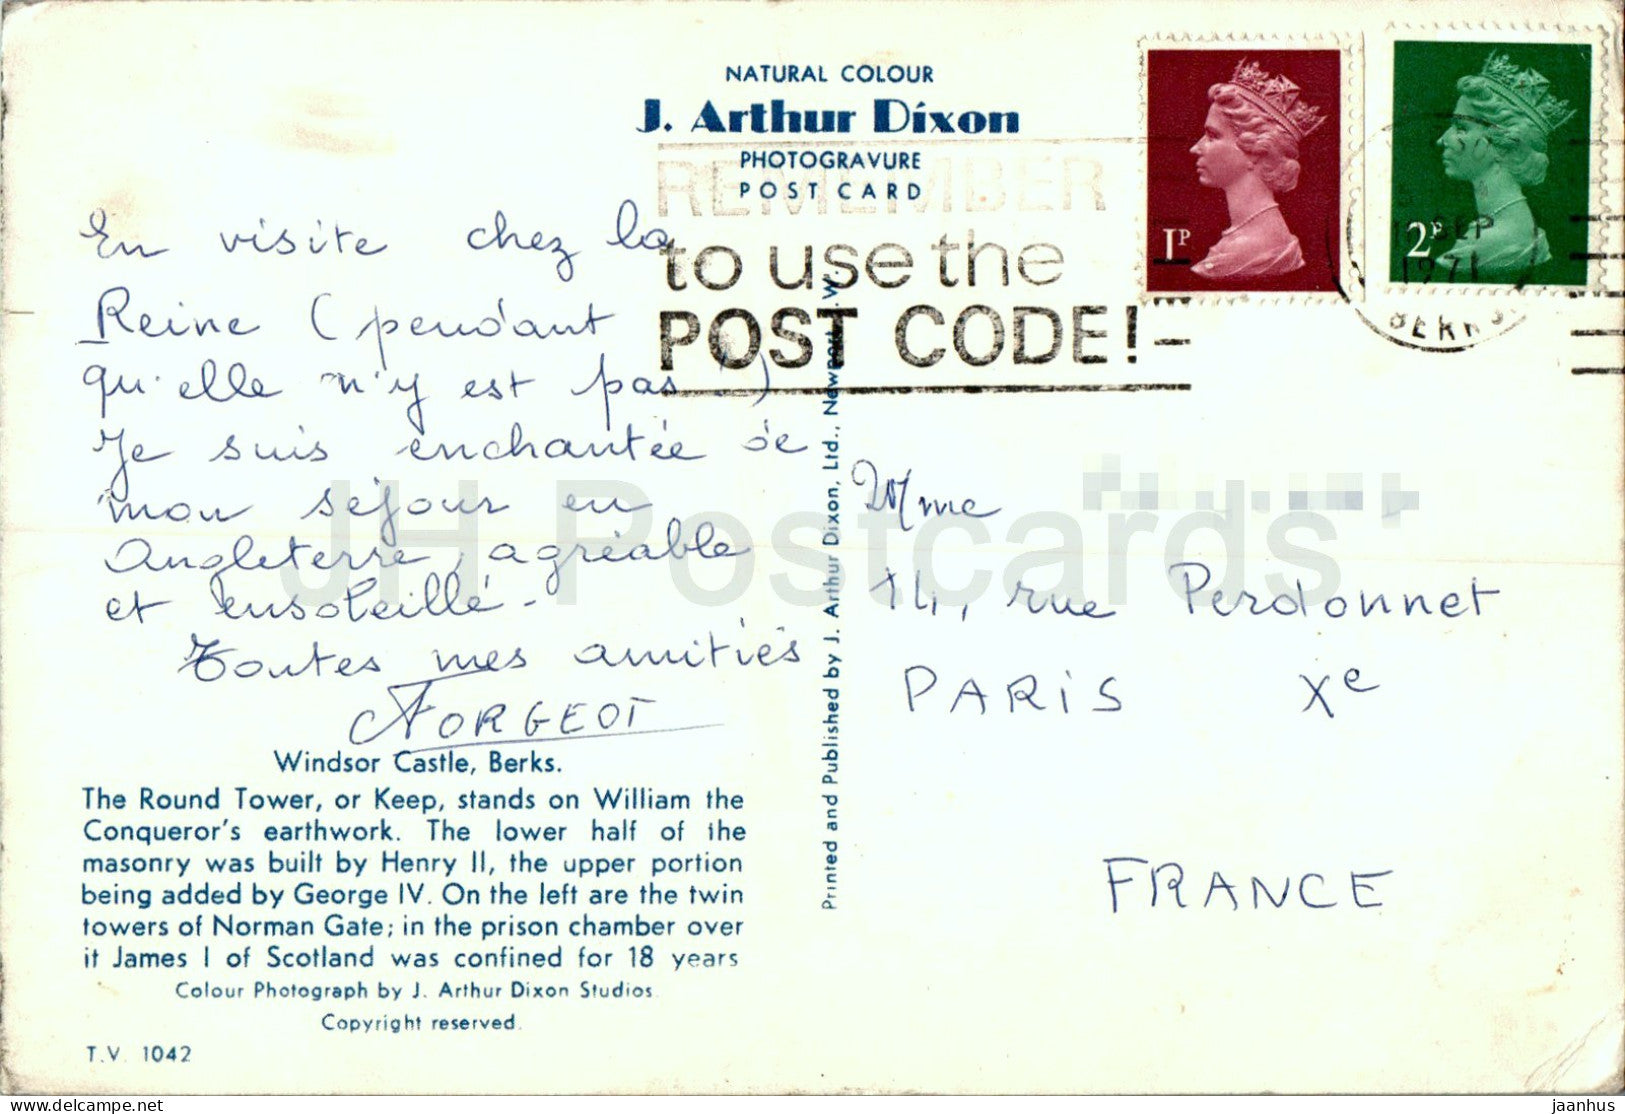 NATURAL COLOUR
J. Arthur Dixon
PHOTOGRAVURE
POST CARD
REMEMBER
to use the
POST CODE!
1P
2P
SEP
1971
BERKS.
En visite chez la
Reine (pendant
qu'elle n'y est pas !)
Je suis enchantée de
mon séjour en
Angleterre, agréable
et ensoleillé -
Toutes mes amitiés
FORGEOT
Windsor Castle, Berks.
The Round Tower, or Keep, stands on William the
Conqueror's earthwork. The lower half of the
masonry was built by Henry II, the upper portion
being added by George IV. On the left are the twin
towers of Norman Gate; in the prison chamber over
it James I of Scotland was confined for 18 years
Colour Photograph by J. Arthur Dixon Studios.
Copyright reserved.
T.V. 1042
Printed and Published by J. Arthur Dixon, Ltd., Newport I.W.
Mme
14, rue Perdonnet
PARIS Xe
FRANCE
JH Postcards
delcampe.net
jaanhus